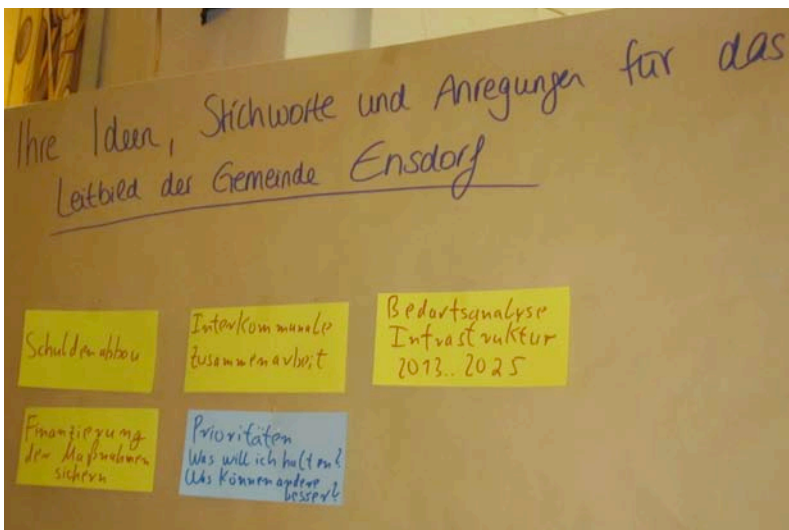 Ihre Ideen, Stichworte und Anregungen für das
Leitbild der Gemeinde Ensdorf
Schuldenabbau
Interkommunale
Zusammenarbeit
Bedarfsanalyse
Infrastruktur
2013..2025
Finanzierung
der Maßnahmen
sichern
Prioritäten
Was will ich halten?
Was können andere
besser?